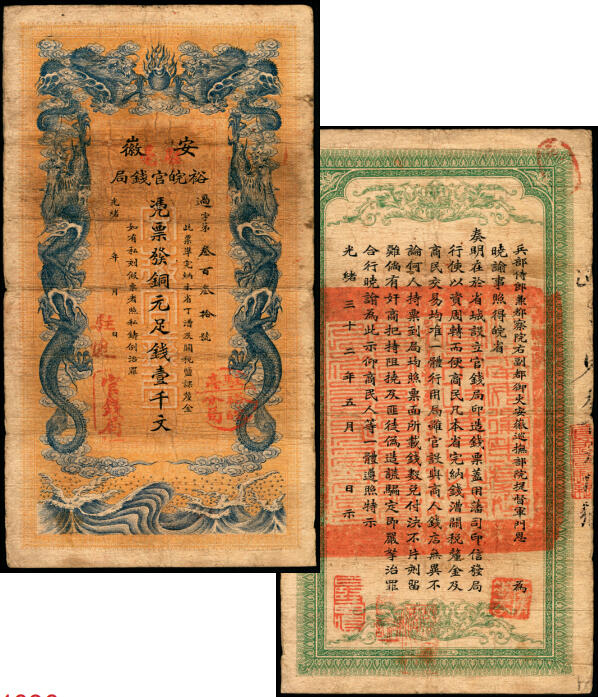 安徽
裕皖官錢局
過字第叁百叁拾號
此票準完納本省丁漕及關稅鹽課釐金
憑票發銅元足錢壹千文
如有私刻假票者照私鑄例治罪
光緒 年 月 日
官錢局
兵部侍郎兼都察院右副都御史安徽巡撫部院提督軍門恩 為
曉諭事照得皖省
奏明在於省城設立官錢局印造錢票蓋用藩司印信發局
行使以資周轉而便商民凡本省完納錢漕關稅釐金及
商民交易均准一體行用局雖官設與商人錢店無異不
論何人持票到局均照票面所載錢數兌付決不片刻留
難倘有奸商把持阻撓及匪徒偽造誆騙定即嚴拏治罪
合行曉諭為此示仰商民人等一體遵照特示
光緒三十二年五月 日示